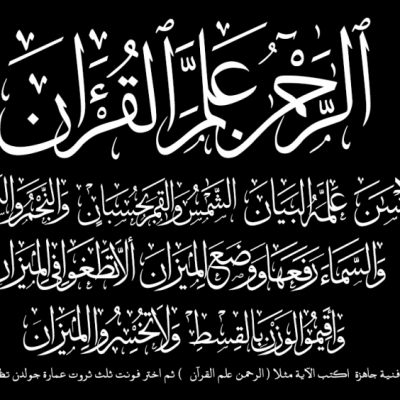 الرَّحْمَٰنُ عَلَّمَ الْقُرْءَانَ
عَلَّمَهُ الْبَيَانَ الشَّمْسُ وَالْقَمَرُ بِحُسْبَانٍ وَالنَّجْمُ
وَالسَّمَاءَ رَفَعَهَا وَوَضَعَ الْمِيزَانَ أَلَّا تَطْغَوْا فِي الْمِيزَانِ
وَأَقِيمُوا الْوَزْنَ بِالْقِسْطِ وَلَا تُخْسِرُوا الْمِيزَانَ
فنية جاهزة اكتب الآية مثلا ( الرحمن علم القرآن ) ثم اختر فونت ثلث ثروت عمارة جولدن